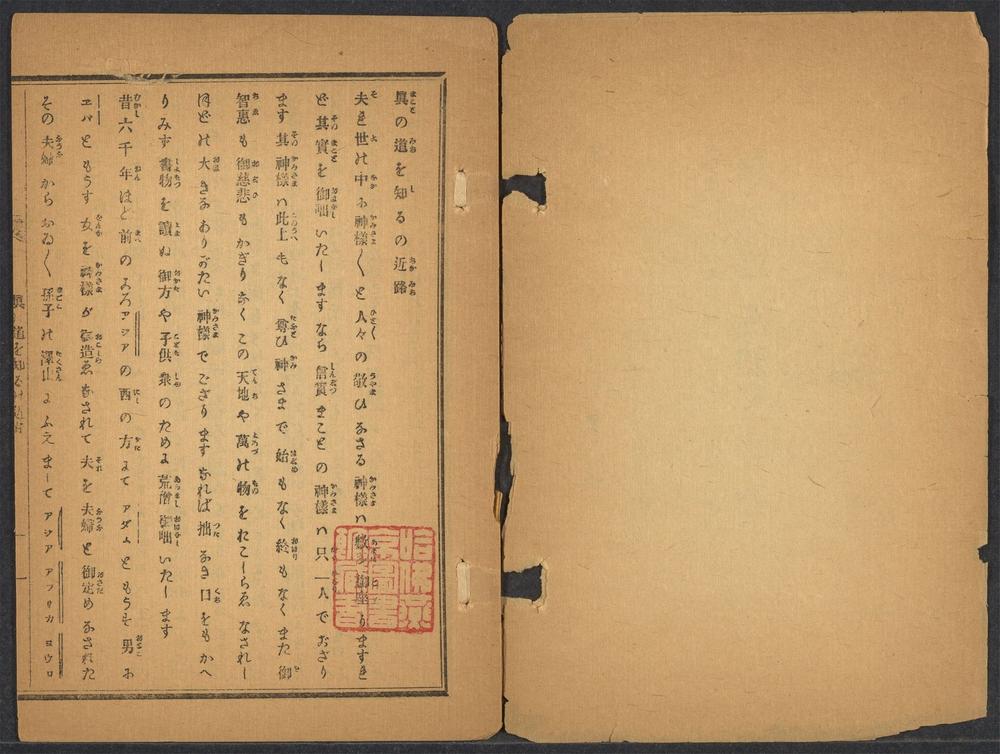 眞の道を知るの近路
夫レ世の中ニ神樣〳〵と人々の敬ひなさる神樣ハ數多御座りますれ
ど其實を御咄いたしますなら信實まことの神樣ハ只一人でおざり
ます其神樣ハ此上もなく尊ひ神さまで始もなく終もなくまた御
智惠も御慈悲もかぎりなくこの天地や萬の物をおこしらゑなされし
ほどの大きなありがたい神樣でござります なれば拙なき口をもかへ
りみず書物を讀ぬ御方や子供衆のために荒增御咄いたします
昔六千年ほど前のころアシアの西の方にてアダムともうす男に
エバともうす女を神樣が御造ゑなされて夫を夫婦と御定めなされた
その夫婦からおゐ〳〵孫子の澤山にふえましてアシア アフリカ ヨウロ
眞の道を知るの近路
一